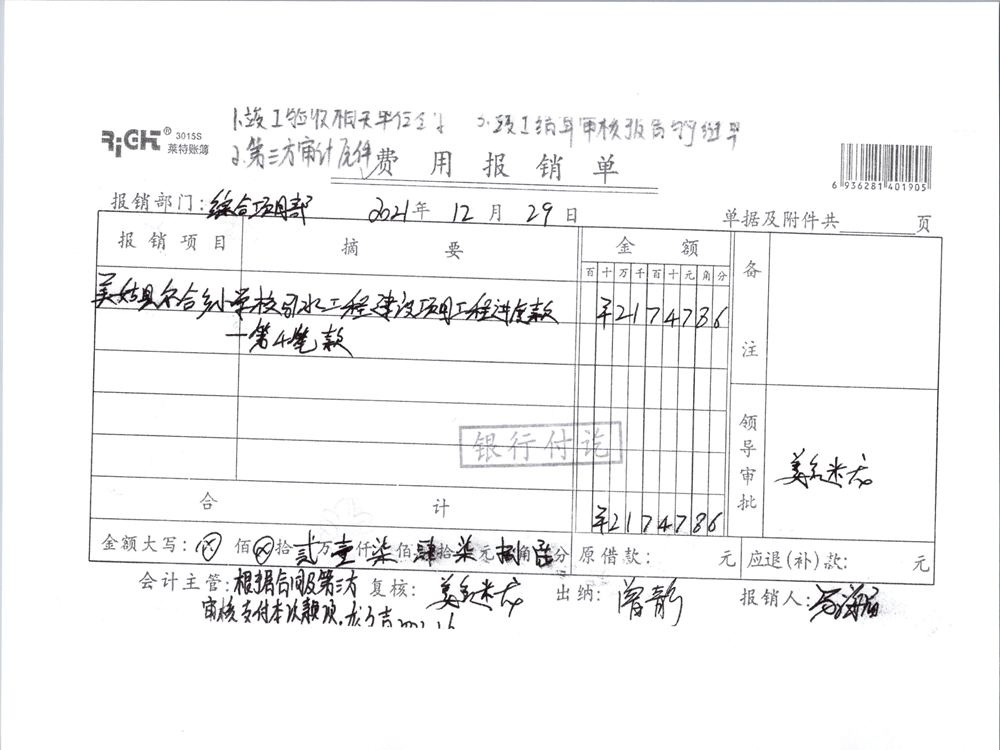 1.竣工验收相关单位
3.竣工结算审核报告
RiGHT® 3015S
莱特账簿
2.第三方审计
费用报销单
6 936281 401905
报销部门:综合项目部 2021年 12月 29日 单据及附件共 页
报销项目 摘要 金额 备注
百十万千百十元角分
美姑县尔合乡小学校引水工程建设项目工程进度款 ¥2174786
一第4笔款
银行付讫
领导审批
合计 ¥2174786
金额大写: 佰 拾贰万壹仟柒佰肆拾柒元捌角陆分 原借款: 元 应退(补)款: 元
会计主管:根据合同及第三方 复核: 出纳:曾静 报销人:
审核支付本次款项.